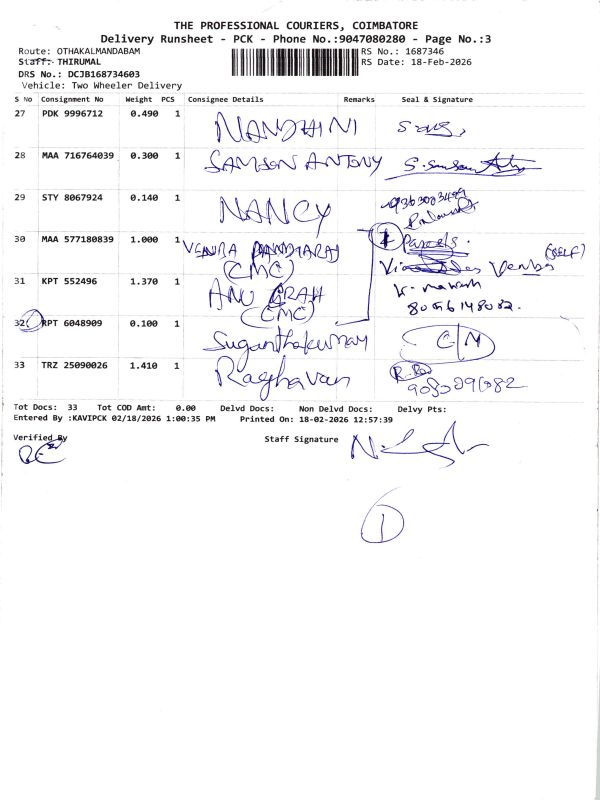 THE PROFESSIONAL COURIERS, COIMBATORE
Delivery Runsheet - PCK - Phone No.:9047080280 - Page No.:3
Route: OTHAKALMANDABAM
RS No.: 1687346
Staff: THIRUMAL
RS Date: 18-Feb-2026
DRS No.: DCJB168734603
Vehicle: Two Wheeler Delivery
S No Consignment No Weight PCS Consignee Details Remarks Seal & Signature
27 PDK 9996712 0.490 1 NANDHINI
28 MAA 716764039 0.300 1 SAMSON ANTONY
29 STY 8067924 0.140 1 NANCY
30 MAA 577180839 1.000 1 (CMC) Parcels.
31 KPT 552496 1.370 1 (CMC) 8056148082.
32 RPT 6048909 0.100 1 Suganthakumay C/M
33 TRZ 25090026 1.410 1 Raghavan
Tot Docs: 33 Tot COD Amt: 0.00 Delvd Docs: Non Delvd Docs: Delvy Pts:
Entered By :KAVIPCK 02/18/2026 1:00:35 PM Printed On: 18-02-2026 12:57:39
Verified By
Staff Signature
1